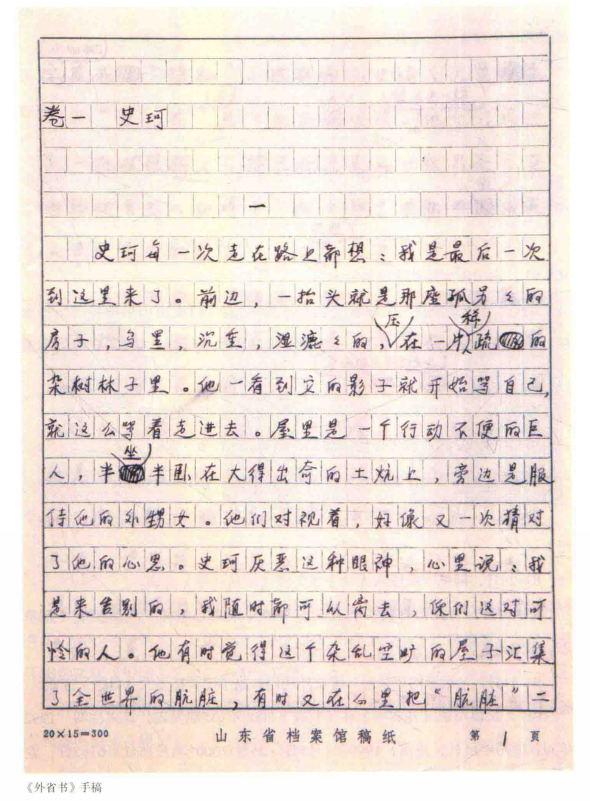 卷一 史珂
一
史珂每一次走在路上都想：我是最后一次
到这里来了。前边，一抬头就是那座孤另々的
房子，乌黑，沉重，湿漉々的，压在一片稀疏的
杂树林子里。他一看到它的影子就开始骂自己，
就这么骂着走进去。屋里是一个行动不便的巨
人，半坐半卧在大得出奇的土炕上，旁边是服
侍他的外甥女。他们对视着，好像又一次猜对
了他的心思。史珂厌恶这种眼神，心里说：我
是来告别的，我随时都可以离去，你们这对可
怜的人。他有时觉得这个杂乱空旷的屋子汇集
了全世界的肮脏，有时又在心里把“肮脏”二
20×15=300 山东省档案馆稿纸 第 1 页
《外省书》手稿